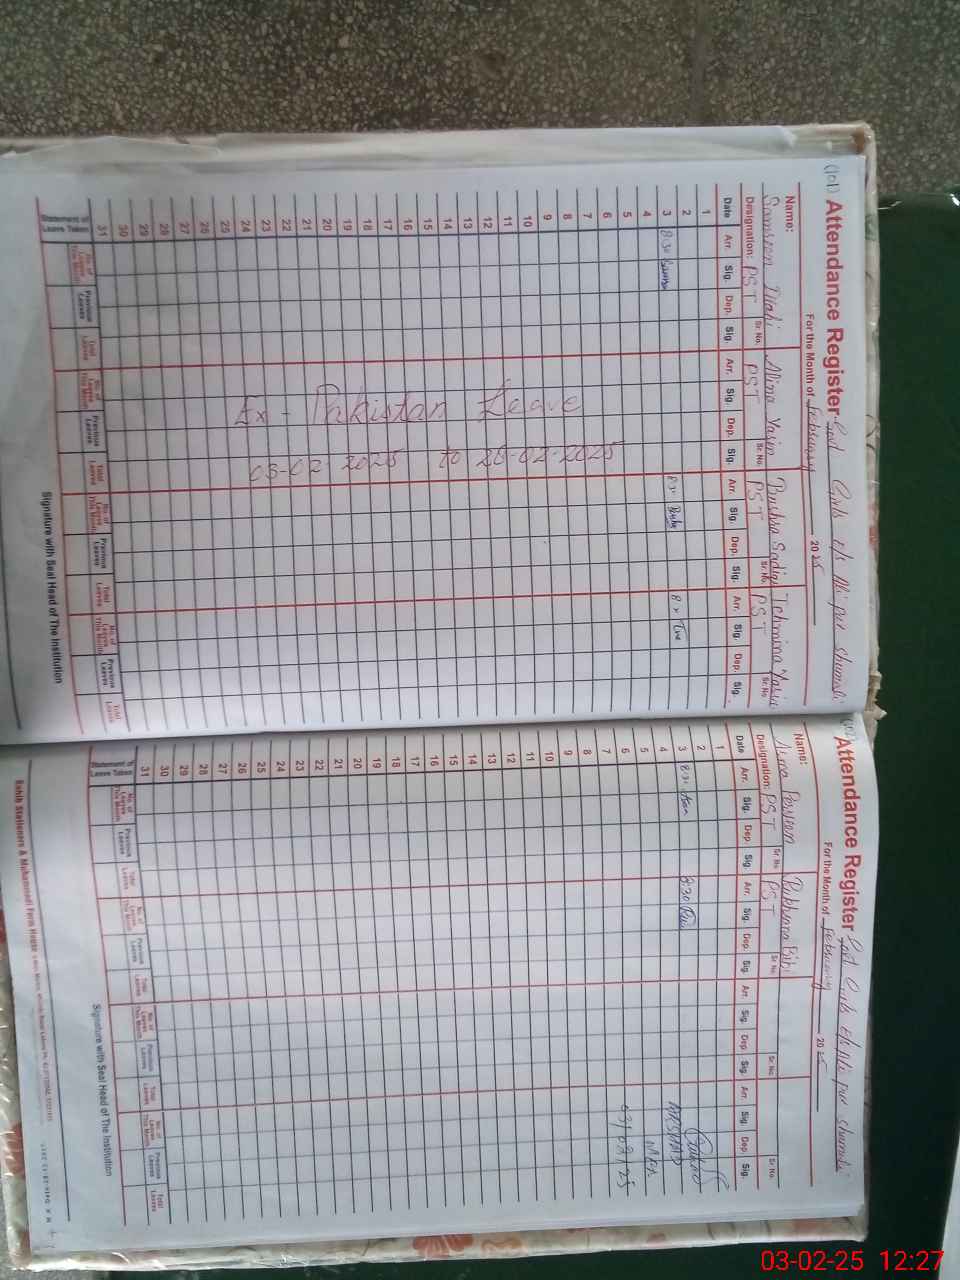 (101) Attendance Register Govt Girls e/s Ali pur shumali
For the Month of February 2025
Name: Alima Yasin Bushra Sadiq Tehmina Yasin
Designation: PST Sr. No. PST Sr. No. PST Sr. No. PST Sr. No
Date Arr. Sig. Dep. Sig. Arr. Sig. Dep. Sig. Arr. Sig. Dep. Sig. Arr. Sig. Dep. Sig.
1
2
3 8:30
4
5
6
7
8
9
10
11
12
13
14
15
16
17
18
19
20
21
22
23
24
25
26
27
28
29
30
31
Ex - Pakistan Leave
03-02 2025 to 28-02-2025
Statement of Leave Taken No. of Leaves This Month Previous Leaves Total Leaves No. of Leaves This Month Previous Leaves Total Leaves No. of Leaves This Month Previous Leaves Total Leaves No. of Leaves This Month Previous Leaves Total Leaves
Signature with Seal Head of The Institution
Attendance Register Govt Girls e/s Ali pur shumali
For the Month of February 2025
Name: Rukhsana Bibi
Designation: PST Sr. No PST Sr. No Sr. No. Sr. No.
Date Arr. Sig. Dep. Sig. Arr. Sig. Dep. Sig. Arr. Sig. Dep Sig. Arr. Sig. Dep Sig.
1
2
3 8:30 8:30
4
5
6
7
8
9
10
11
12
13
14
15
16
17
18
19
20
21
22
23
24
25
26
27
28
29
30
31
ARSHAD
MEA
03/02/25
Statement of Leave Taken No. of Leaves This Month Previous Leaves Total Leaves No. of Leaves This Month Previous Leaves Total Leaves No. of Leaves This Month Previous Leaves Total Leaves No. of Leaves This Month Previous Leaves Total Leaves
Signature with Seal Head of The Institution
Sahib Stationers & Muhammadi Form House
03-02-25 12:27